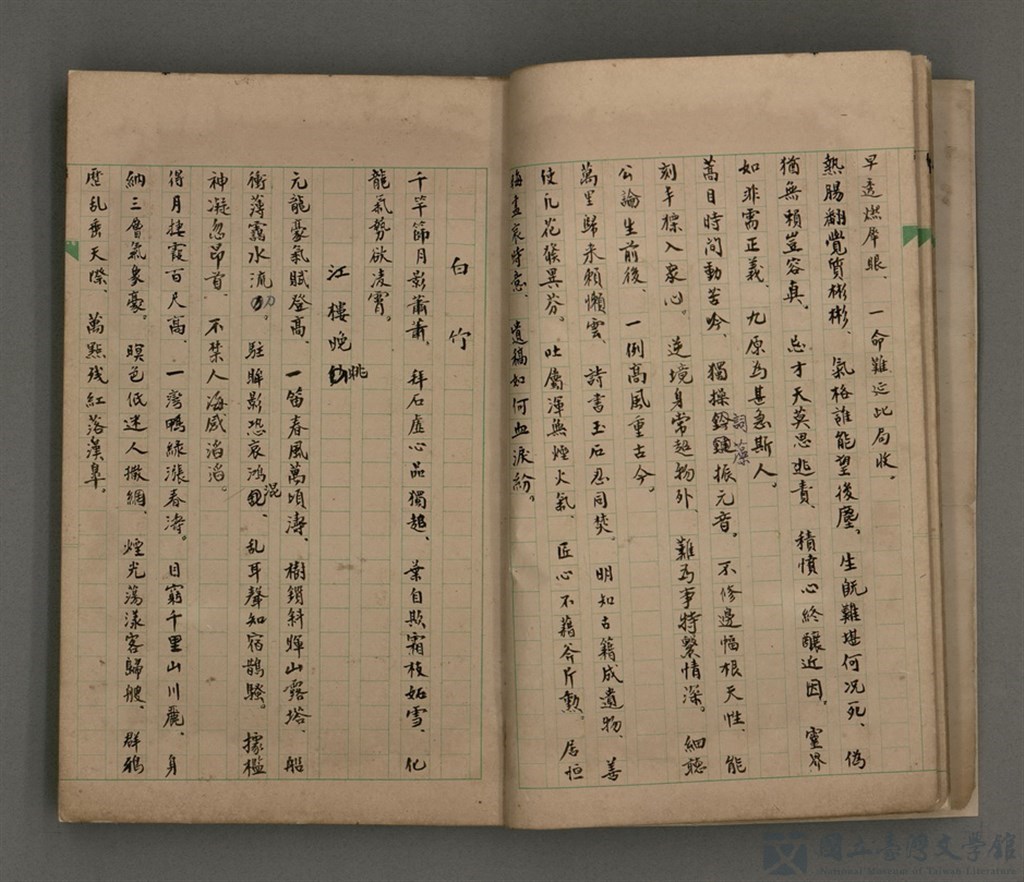 早透燃犀眼、一命難延此局收。
熱腸翻覺質彬彬、氣格誰能望後塵。生既難堪何况死、偽
猶無賴豈容真。忌才天莫思逃責、積憤心終釀近因。靈界
如非需正義、九原為甚急斯人。
蒿目時尚動苦吟、獨操詞藻振元音。不修邊幅根天性、能
刻辛標入衆心。逆境身常超物外、難為事特繫情深。細聽
公論生前後、一例高風重古今。
萬里歸来賴懶雲、詩書玉石忍同焚。明知古籍成遺物、善
使凡花發異芬。吐屬渾無煙火氣、匠心不藉斧斤勲。居恒
悔盡哀時意、遺稿如何血淚紛。
白竹
千竿節月影蕭蕭、拜石虛心品獨超、葉自欺霜枝妬雪、化
龍氣勢欲凌霄。
江樓晚眺
元龍豪氣賦登高、一笛春風萬頃濤、樹鎖斜暉山露塔、船
衝薄靄水流刀。駐眸影恐哀鴻混、乱耳聲知宿鵲騷。據檻
神凝忽昂首、不禁人海感滔滔。
得月捿霞百尺高、一灣鴨綠漲春濤。目窮千里山川麗、身
納三層氣象豪。暝色低迷人撒網、煙光蕩漾客歸艘、群鴉
歴乱垂天際、萬點残紅落漢皋。
國立臺灣文學館
National Museum of Taiwan Literature